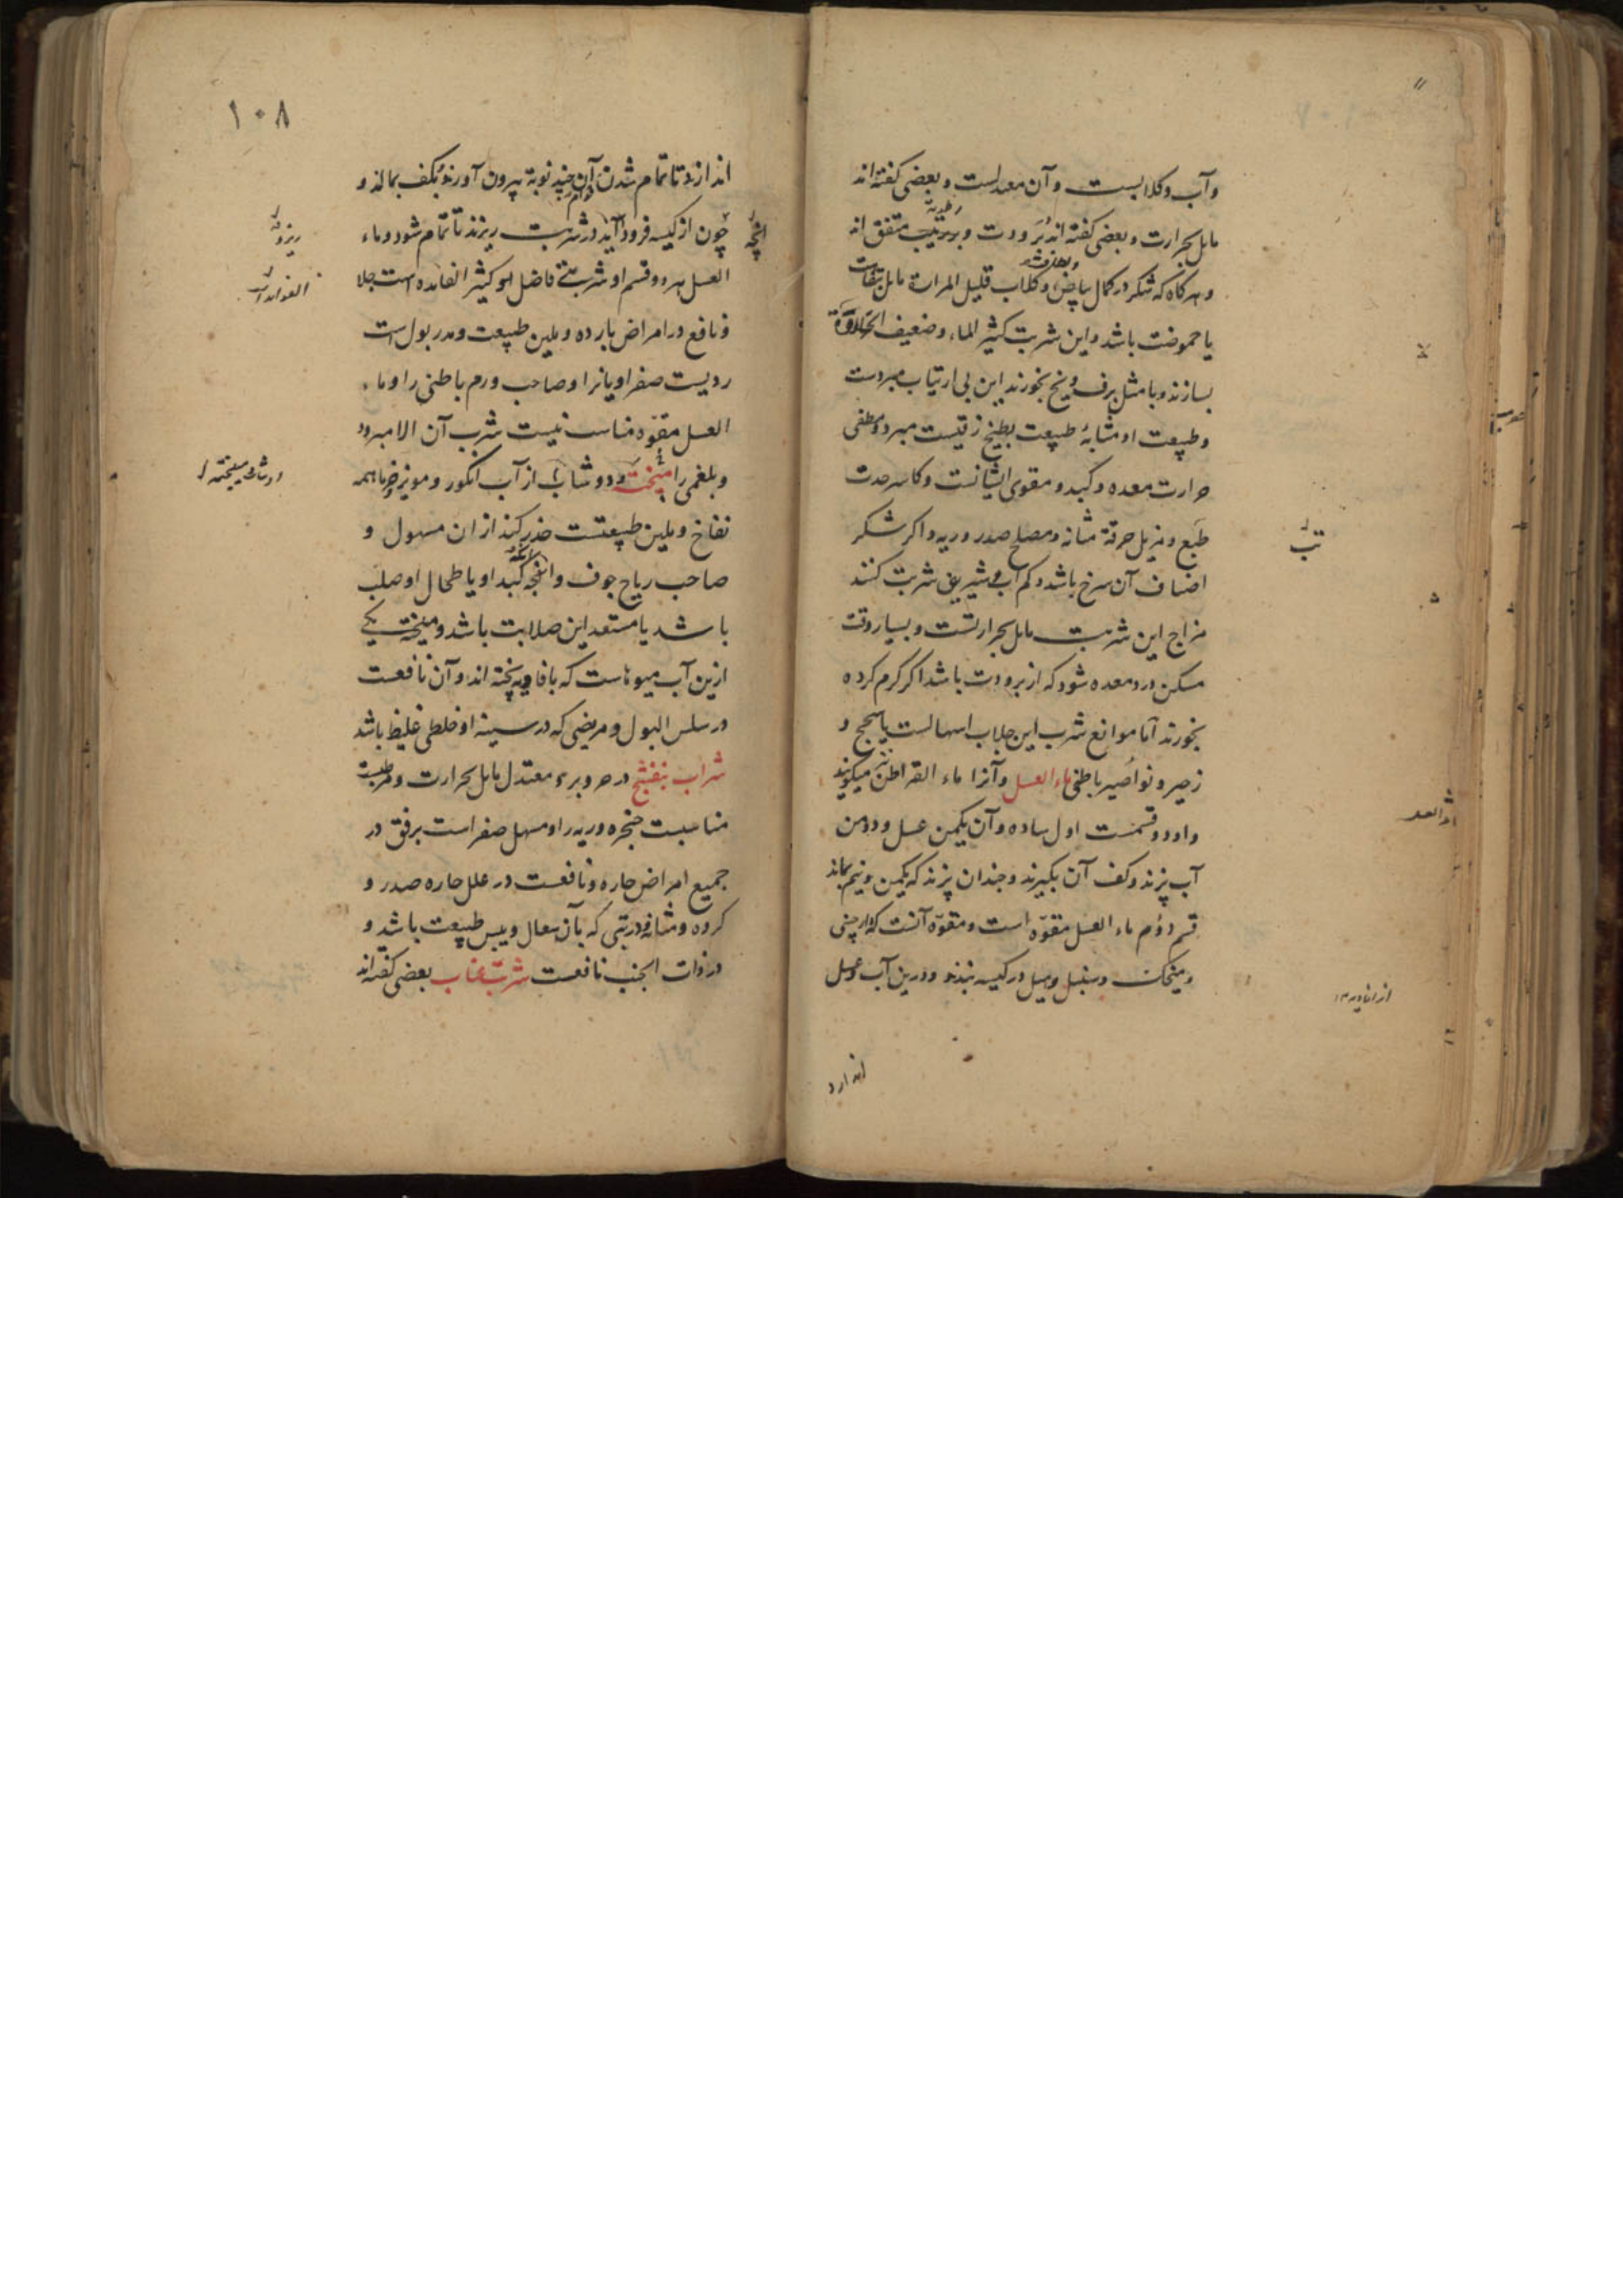 وآب وکلابست وآن معدلست وبعضی کفته اند
مایل بحرارت وبعضی کفته اند ببرودت وبر متفق اند
وهرکاه که شکر در کمال بیاض وکلاب قلیل المرارة مایل
یا حموضت باشد واین شربت کثیر الماء وضعیف الحلاوة
بسازند وبا مثل برف ویخ بخورند این بی ارتیاب مبردست
وطبیعت او مشابۀ طبیعت بطیخ زقیست مبرد ومطفی
حرارت معده وکبد ومقوی ایشانست وکاسر حدت
طبع ومزیل حرقة مثانه ومصلح صدر وریه واکر شکر
اضاف آن سرخ باشد وکم آب شربت کنند
مزاج این شربت مایل بحرارتست وبسیار وقت
مسکن درد معده شود که از برودت باشد اکر کرم کرده
بخورند اما موانع شرب این جلاب اسهالست یا سحج و
زحیر ونواصیر باطنی ماء العسل وآنرا ماء القراطن میکویند
واو دو قسمست اول ساده وآن یکمن عسل ودو من
آب پزند وکف آن بکیرند وچندان پزند که یکمن ونیم بماند
قسم دوم ماء العسل مقوّه است ومقوّه آنست که دارچینی
ومیخک وسنبل وهیل در کیسه بندند ودرین آب وعسل
اندازد
تب
۱۰۸
اندازند تا تمام شدن آن چند نوبة بیرون آورند وبکف بمالند و
چون از کیسه فرود آید در شربت ریزند تا تمام شود وماء
العسل هر دو قسم او شربتی فاضل او کثیر الفایده است جلا
ونافع در امراض بارده وملین طبیعت ومدر بول است
ردیست صفراویانرا وصاحب ورم باطنی را وماء
العسل مقوّه مناسب نیست شرب آن الا مبرود
وبلغمی را میبخته ودوشاب از آب انکور ومویز وخرما همه
نفاخ وملین طبیعتست حذر کند از ان مسهول و
صاحب ریاح جوف وانکه کبد او یا طحال او صلب
باشد یا مستعد این صلابت باشد ومیبخته یکی
ازین آب میوهاست که با فاویه پخته اند وآن نافعست
در سلس البول ومریضی که در سینۀ او خلطی غلیظ باشد
شراب بنفشج در حر وبرد معتدل مایل بحرارت ومرطبست
مناسبست حنجره وریه را ومسهل صفراست برفق در
جمیع امراض حاره ونافعست در علل حاره صدر و
کرده ومثانه ودر تبی که بآن سعال ویبس طبیعت باشد و
در ذات الجنب نافعست شربت عناب بعضی کفته اند
انچه